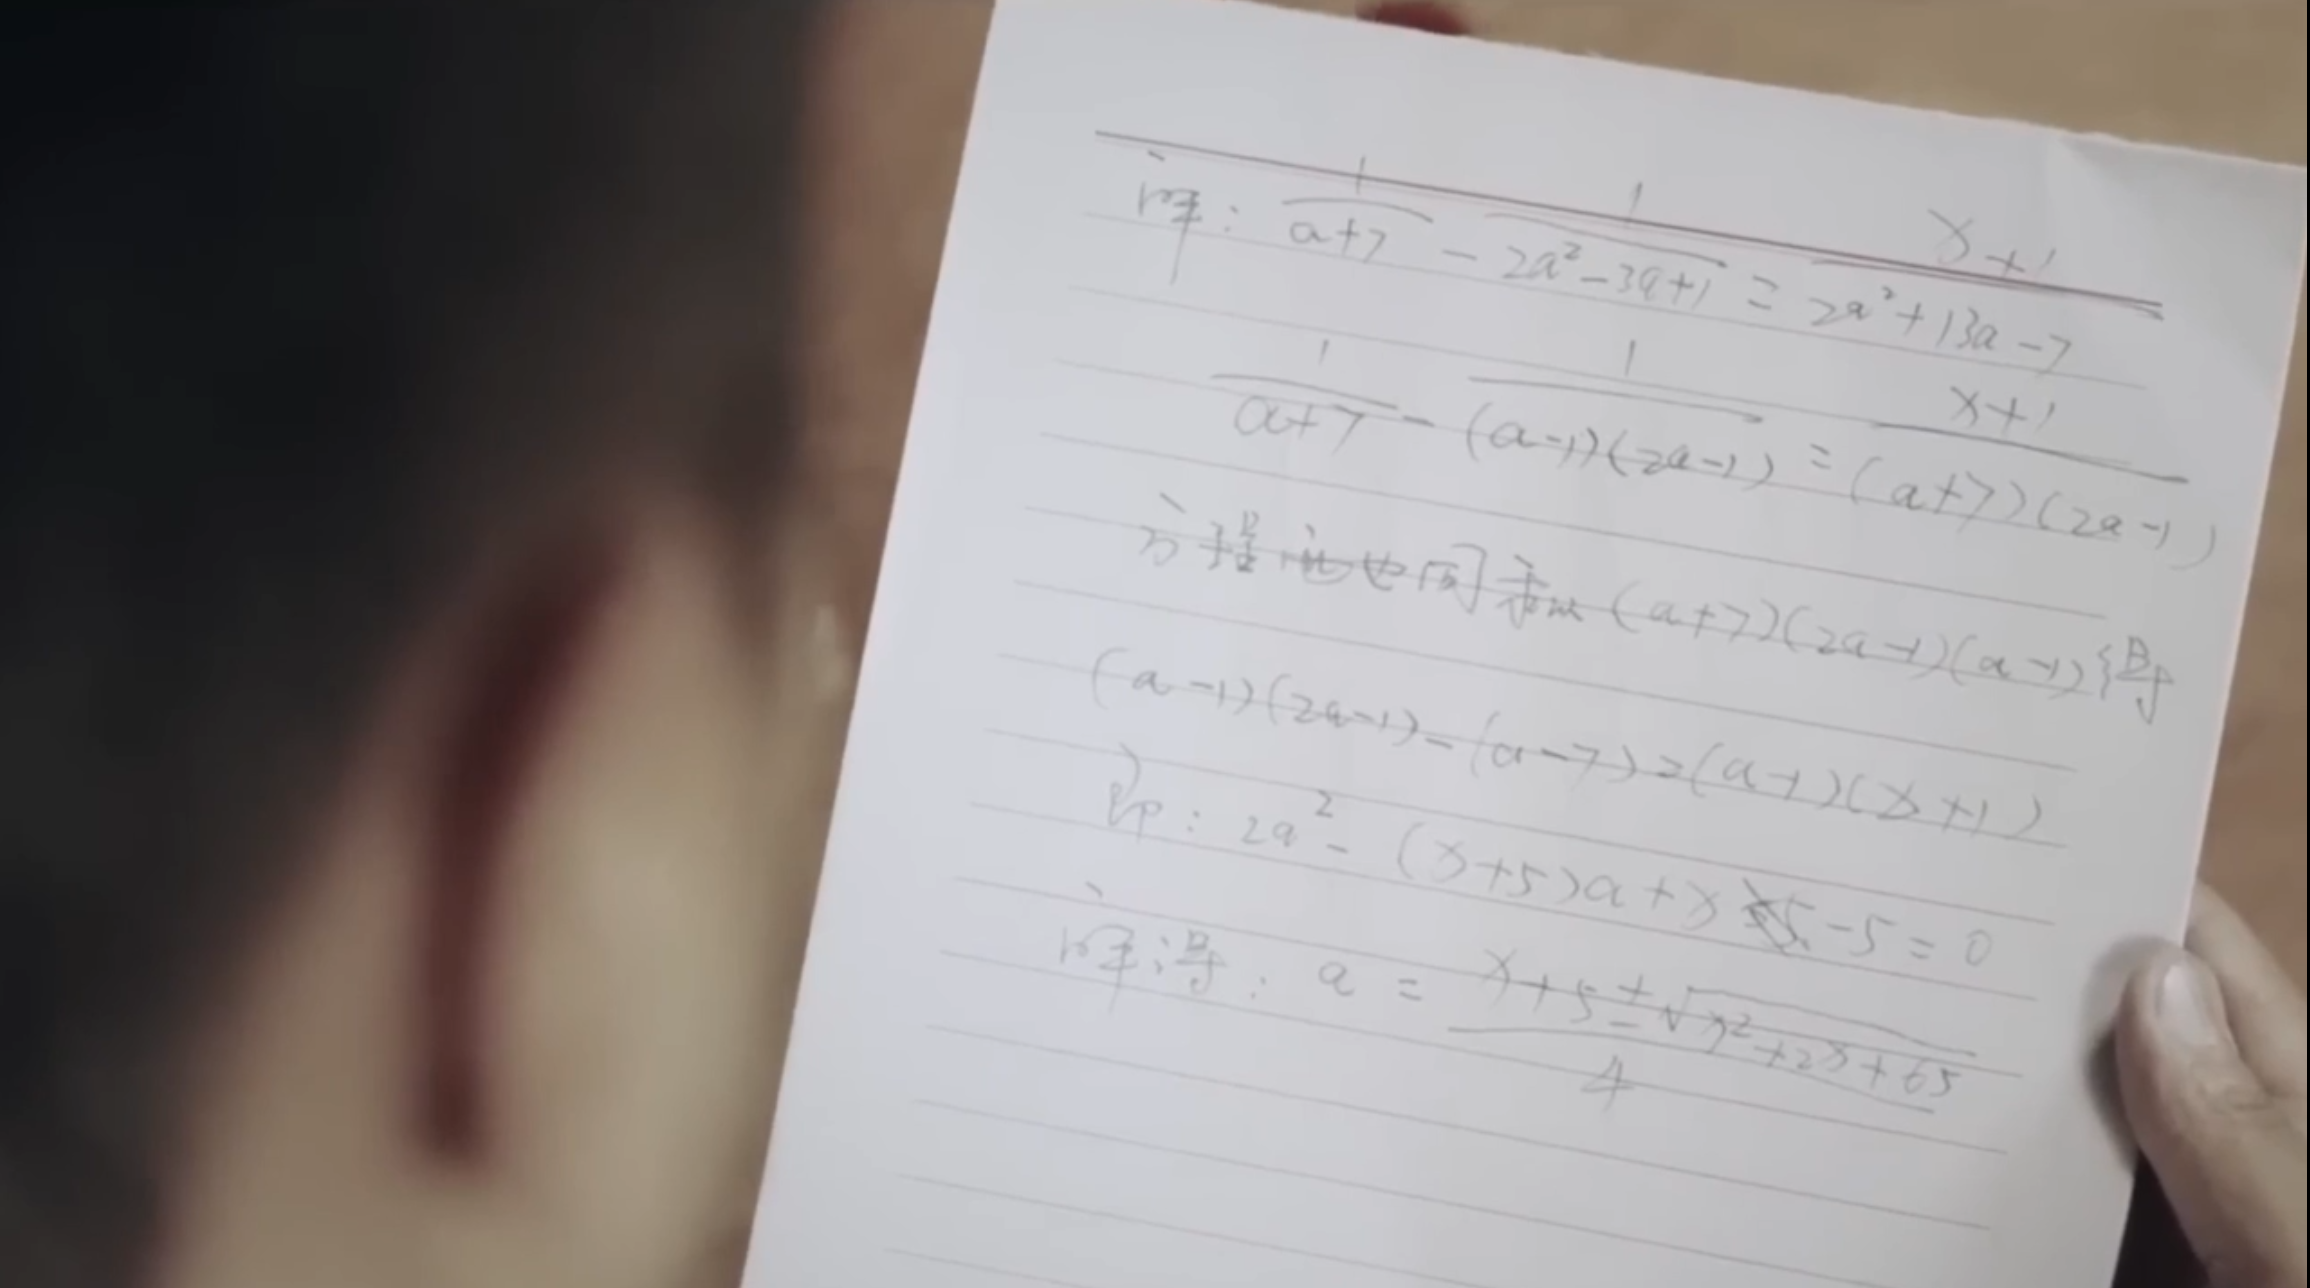 解: \frac{1}{a+7} - \frac{1}{2a²-3a+1} = \frac{x+1}{2a²+13a-7}
\frac{1}{a+7} - \frac{1}{(a-1)(2a-1)} = \frac{x+1}{(a+7)(2a-1)}
方程 同乘以(a+7)(2a-1)(a-1)得
(a-1)(2a-1)-(a-7)=(a-1)(x+1)
即: 2a²-(x+5)a+x-5=0
解得: a = \frac{x+5±\sqrt{x²+2x+65}}{4}